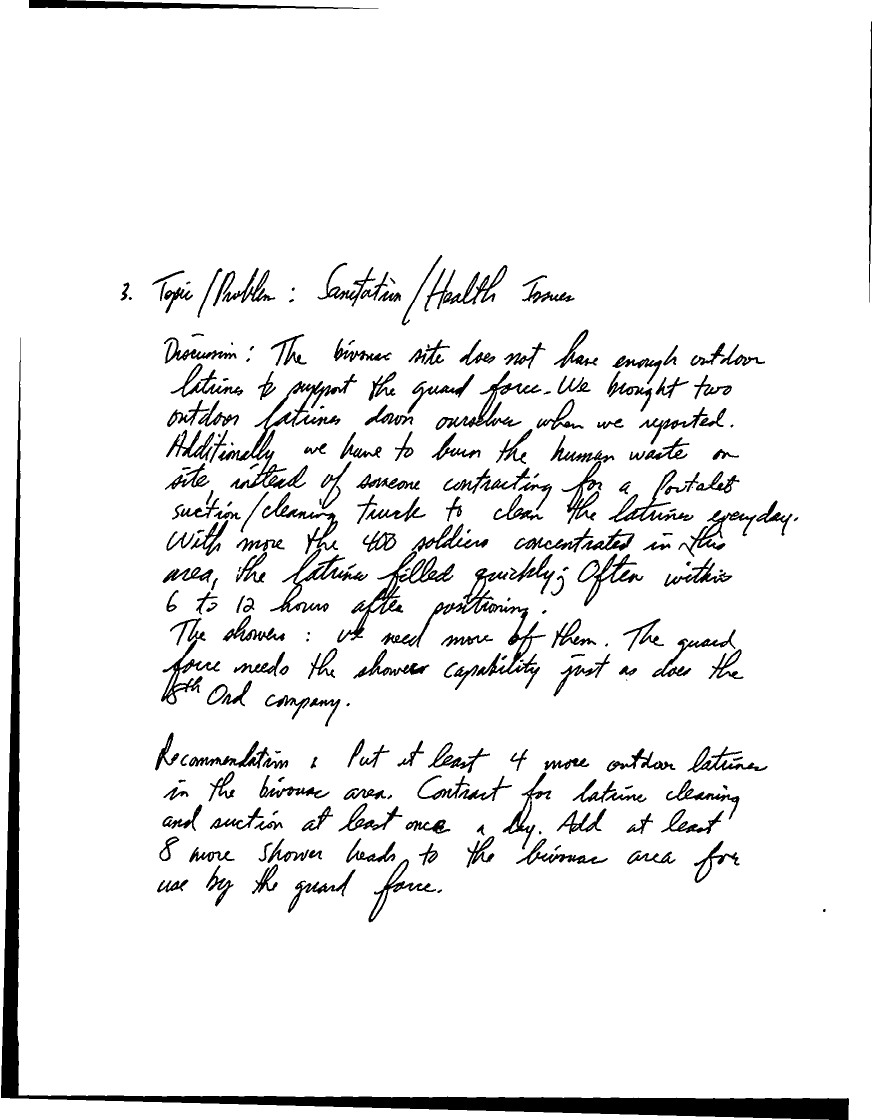 3. Topic/Problem : Sanitation/Health Issues
Discussion: The bivouac site does not have enough outdoor
latrines to support the guard force. We brought two
outdoor latrines down ourselves when we reported.
Additionally we have to burn the human waste on
site, instead of someone contracting for a Portalet
suction/cleaning truck to clean the latrines everyday.
With more the 400 soldiers concentrated in this
area, the latrines filled quickly; Often within
6 to 12 hours after positioning.
The showers : we need more of them. The guard
force needs the shower capability just as does the
8th Ord company.
Recommendation : Put at least 4 more outdoor latrines
in the bivouac area. Contract for latrine cleaning
and suction at least once a day. Add at least
8 more shower heads to the bivouac area for
use by the guard force.